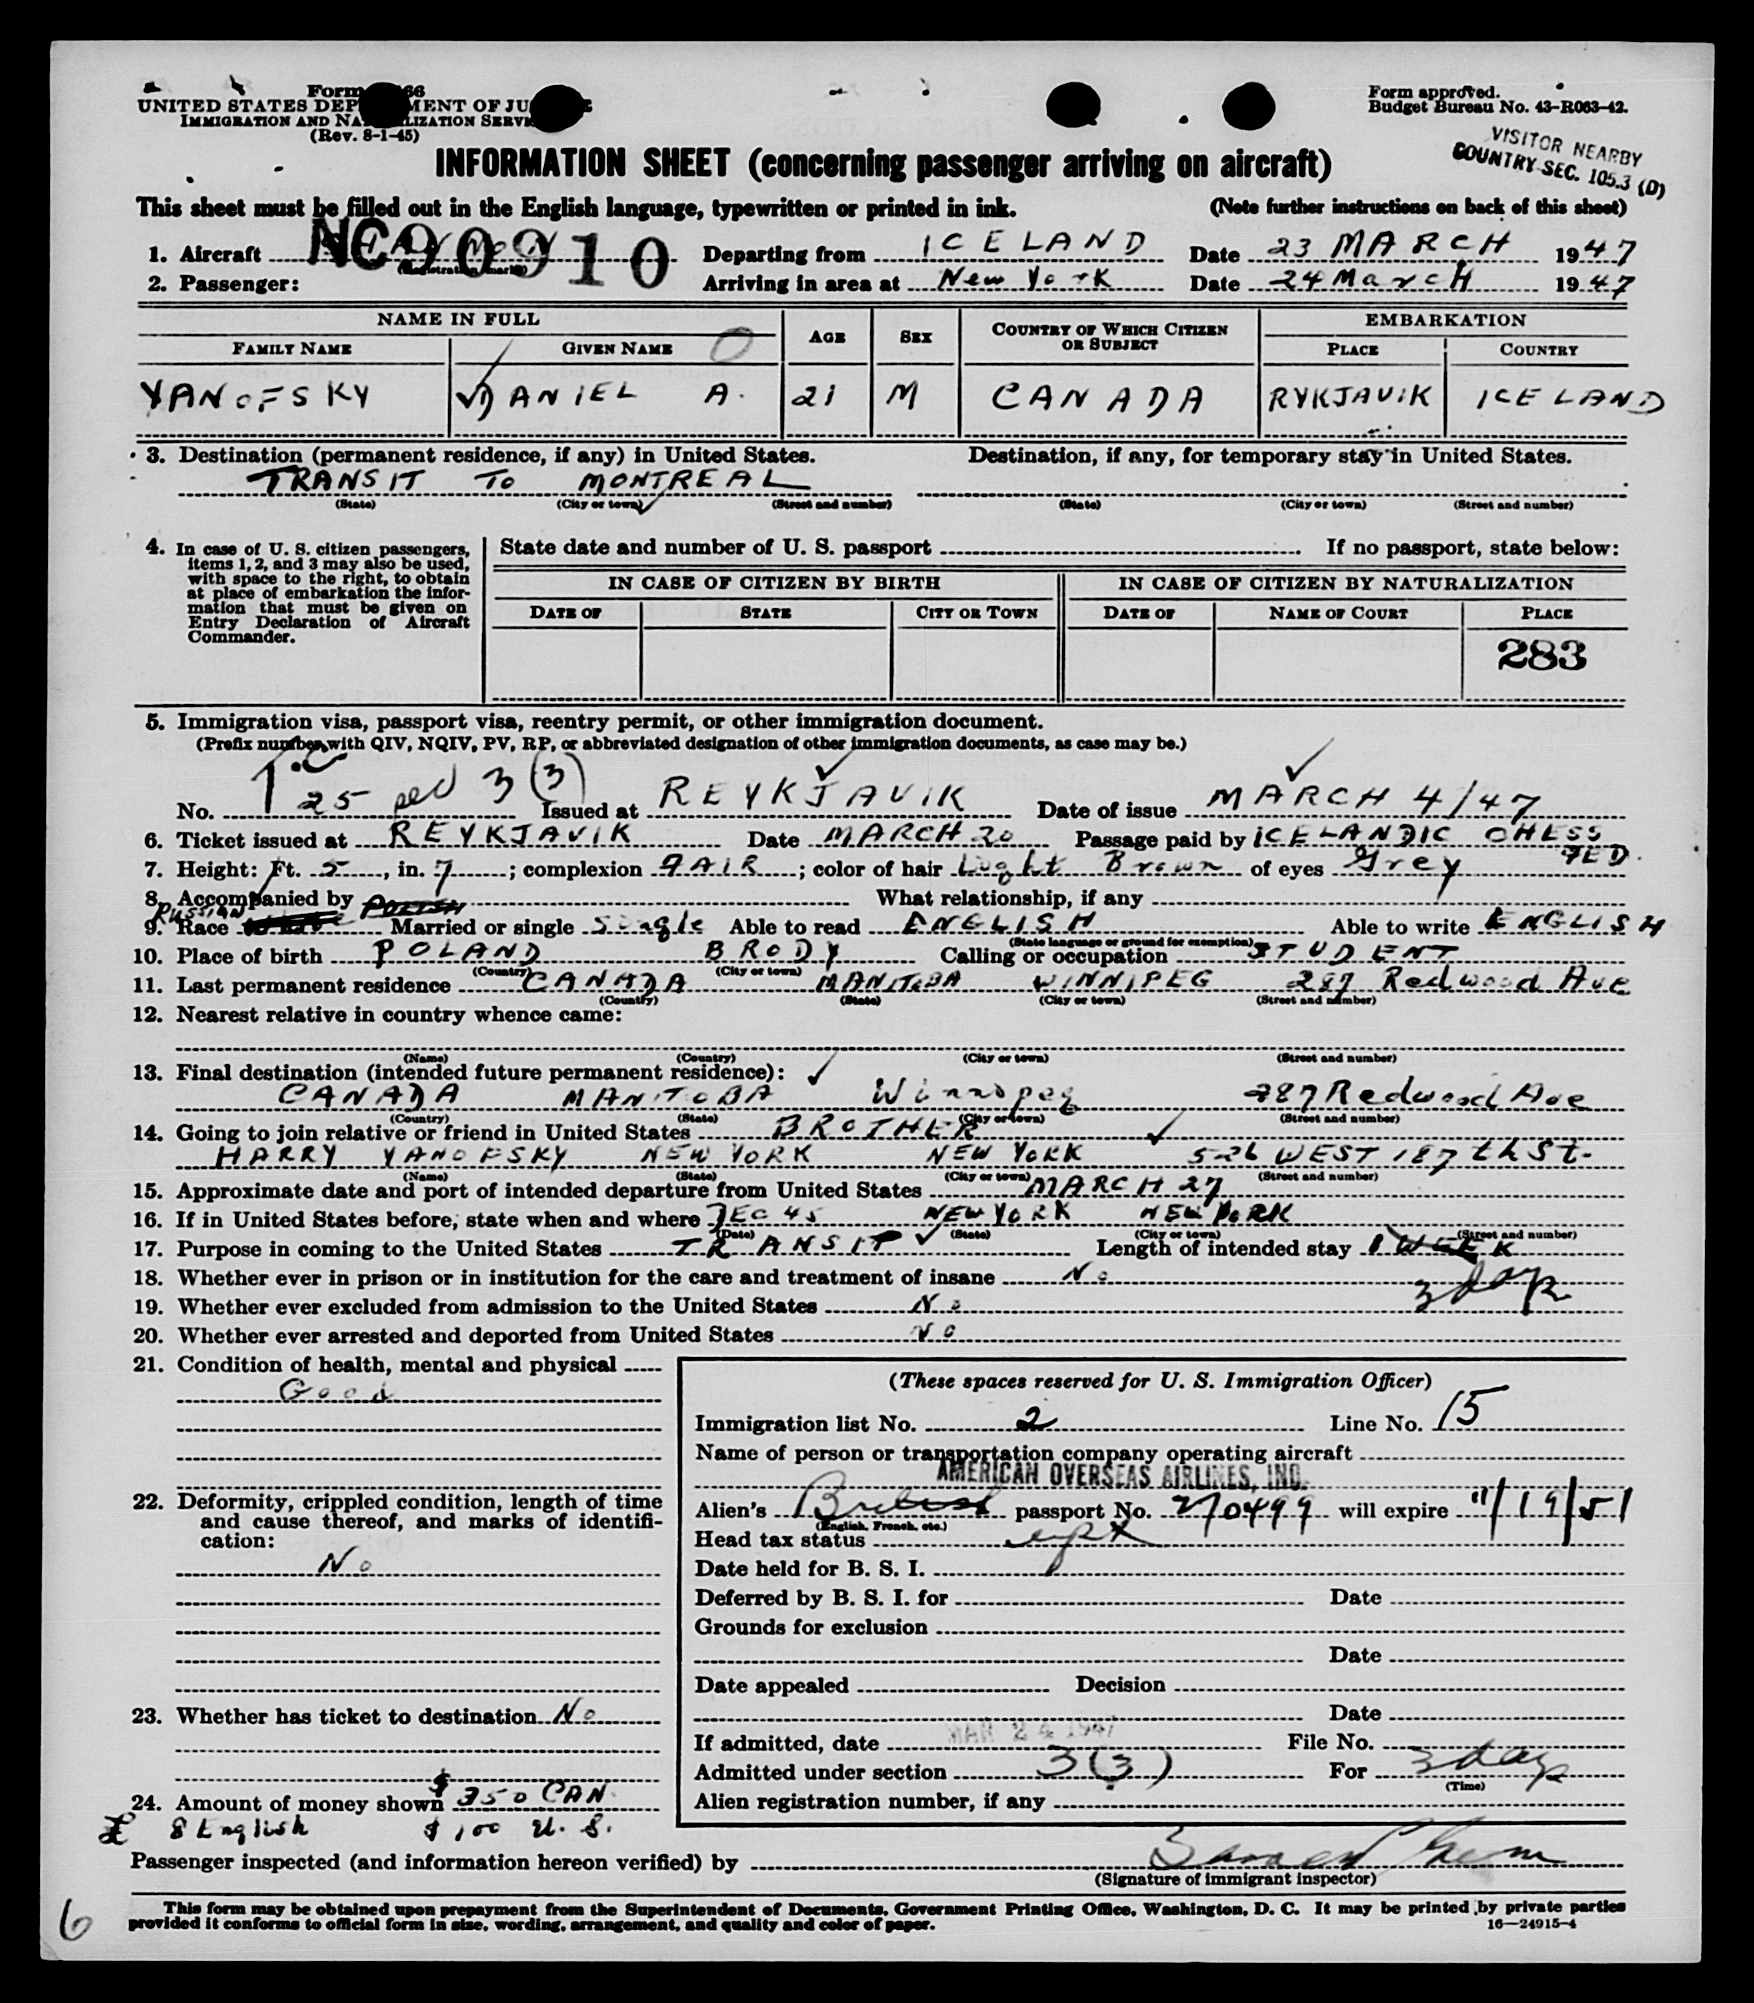 Form 66
UNITED STATES DEP MENT OF JU
IMMIGRATION AND NA LIZATION SERV
(Rev. 8-1-45)
Form approved.
Budget Bureau No. 43-R063-42.
VISITOR NEARBY
COUNTRY SEC. 105.3 (D)
INFORMATION SHEET (concerning passenger arriving on aircraft)
This sheet must be filled out in the English language, typewritten or printed in ink. (Note further instructions on back of this sheet)
1. Aircraft NC90910 Departing from ICELAND Date 23 MARCH 1947
(Registration marks)
2. Passenger: Arriving in area at New York Date 24 March 1947
NAME IN FULL AGE SEX COUNTRY OF WHICH CITIZEN OR SUBJECT EMBARKATION
FAMILY NAME GIVEN NAME PLACE COUNTRY
YANOFSKY DANIEL A. 21 M CANADA RYKJAVIK ICELAND
3. Destination (permanent residence, if any) in United States. Destination, if any, for temporary stay in United States.
TRANSIT TO MONTREAL
(State) (City or town) (Street and number) (State) (City or town) (Street and number)
4. In case of U. S. citizen passengers, items 1, 2, and 3 may also be used, with space to the right, to obtain at place of embarkation the information that must be given on Entry Declaration of Aircraft Commander.
State date and number of U. S. passport If no passport, state below:
IN CASE OF CITIZEN BY BIRTH IN CASE OF CITIZEN BY NATURALIZATION
DATE OF STATE CITY OR TOWN DATE OF NAME OF COURT PLACE
283
5. Immigration visa, passport visa, reentry permit, or other immigration document.
(Prefix number with QIV, NQIV, PV, RP, or abbreviated designation of other immigration documents, as case may be.)
No. 25 3(3) Issued at REYKJAVIK Date of issue MARCH 4/47
6. Ticket issued at REYKJAVIK Date MARCH 20 Passage paid by ICELANDIC CHESS FED.
7. Height: Ft. 5, in. 7; complexion FAIR; color of hair Light Brown of eyes Grey
8. Accompanied by What relationship, if any
9. Race RUSSIAN POLISH Married or single Single Able to read ENGLISH Able to write ENGLISH
(State language or ground for exemption)
10. Place of birth POLAND BRODY Calling or occupation STUDENT
(Country) (City or town)
11. Last permanent residence CANADA MANITOBA WINNIPEG 287 Redwood Ave
(Country) (State) (City or town) (Street and number)
12. Nearest relative in country whence came:
(Name) (Country) (City or town) (Street and number)
13. Final destination (intended future permanent residence):
CANADA MANITOBA Winnipeg 287 Redwood Ave
(Country) (State) (City or town) (Street and number)
14. Going to join relative or friend in United States BROTHER
HARRY YANOFSKY NEW YORK NEW YORK 526 WEST 187th St.
(Name) (State) (City or town) (Street and number)
15. Approximate date and port of intended departure from United States MARCH 27
16. If in United States before, state when and where DEC 45 NEW YORK NEW YORK
(Date) (State) (City or town) (Street and number)
17. Purpose in coming to the United States TRANSIT Length of intended stay 1 WEEK
3 days
18. Whether ever in prison or in institution for the care and treatment of insane No
19. Whether ever excluded from admission to the United States No
20. Whether ever arrested and deported from United States No
21. Condition of health, mental and physical
Good
22. Deformity, crippled condition, length of time and cause thereof, and marks of identification:
No
23. Whether has ticket to destination No
24. Amount of money shown $350 CAN.
£ 8 English $100 U. S.
(These spaces reserved for U. S. Immigration Officer)
Immigration list No. 2 Line No. 15
Name of person or transportation company operating aircraft
AMERICAN OVERSEAS AIRLINES, INC.
Alien's British passport No. 270499 will expire 11/19/51
(English, French, etc.)
Head tax status
Date held for B. S. I.
Deferred by B. S. I. for Date
Grounds for exclusion
Date
Date appealed Decision
Date
If admitted, date MAR 24 1947 File No.
Admitted under section 3(3) For 3 days
(Time)
Alien registration number, if any
Passenger inspected (and information hereon verified) by
(Signature of immigrant inspector)
This form may be obtained upon prepayment from the Superintendent of Documents, Government Printing Office, Washington, D. C. It may be printed by private parties
provided it conforms to official form in size, wording, arrangement, and quality and color of paper. 16—24915-4
6